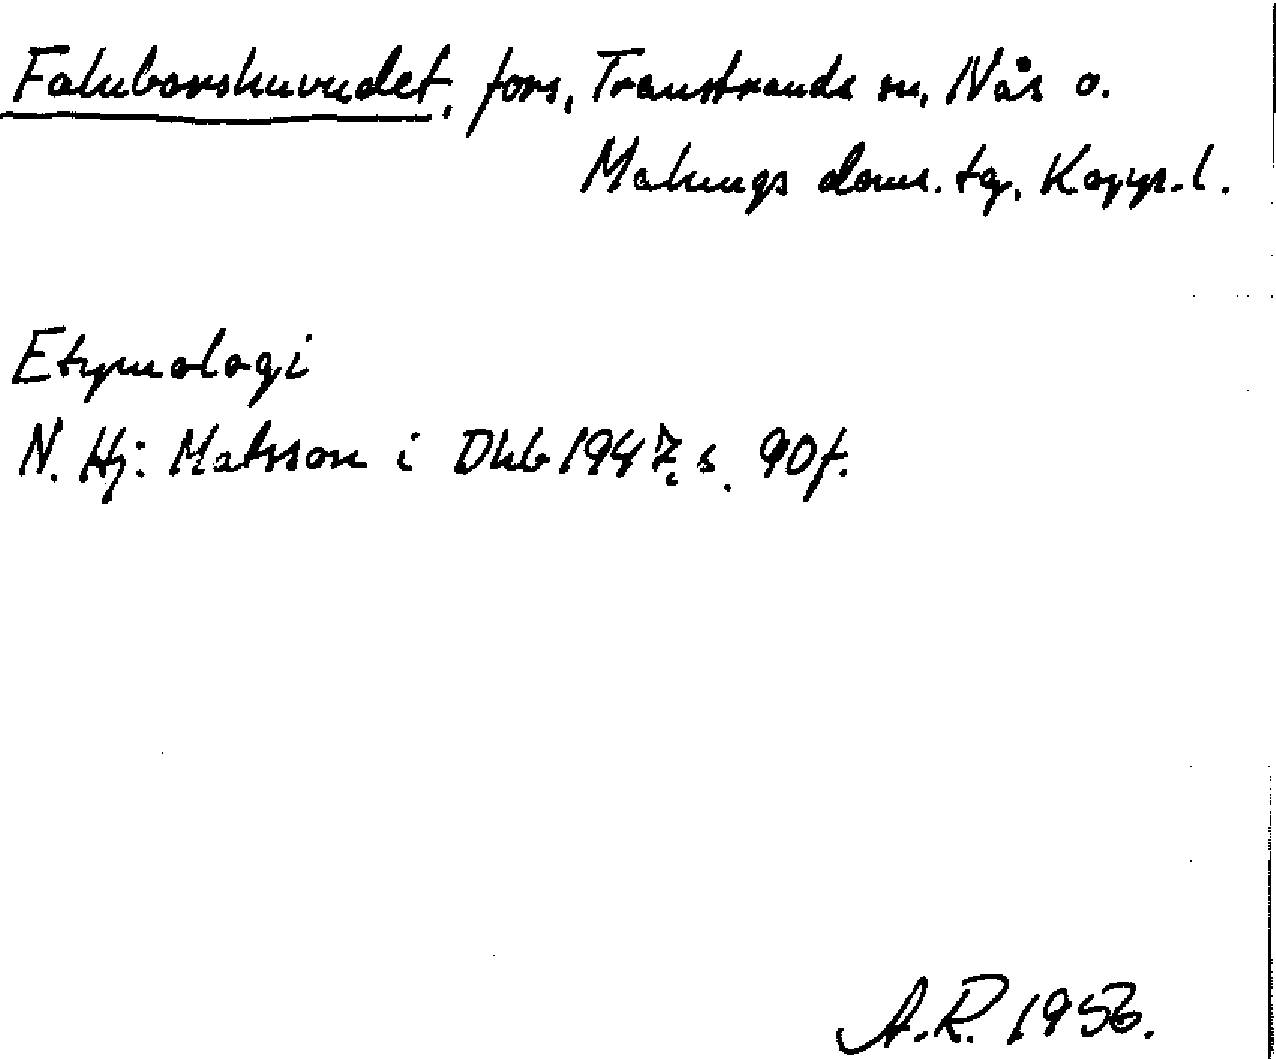 Faluborshuvudet, fors, Transtrands sn, Nås o.
Malungs doms. tg, Kopps. l.
Etymologi
N. Hj: Matsson i Dhb 1947, s. 90f.
A.R. 1956.